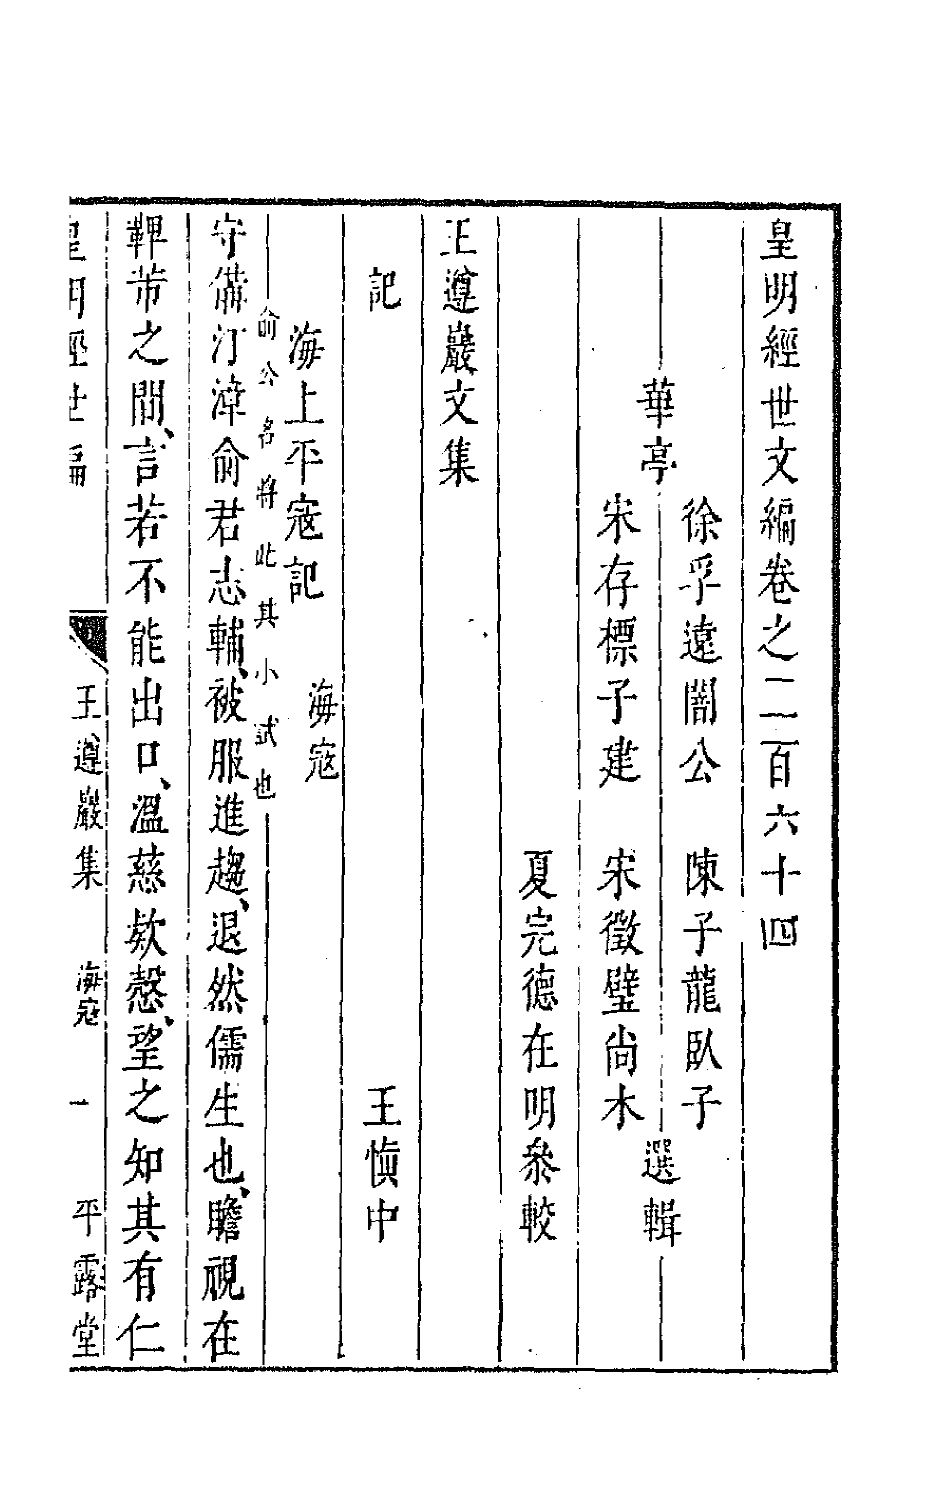 皇明經世文編卷之二百六十四
華亭
徐孚遠闇公　陳子龍臥子
宋存標子建　宋徵璧尚木
選輯
夏完德在明叅較
王遵巖文集
記　王慎中
海上平寇記　海寇
俞公名將此其小試也
守備汀漳俞君志輔、被服進趨、退然儒生也、瞻視在
鞞芾之間、言若不能出口、溫慈欵愨、望之知其有仁
皇明經世編　王遵巖集　海寇　一　平露堂